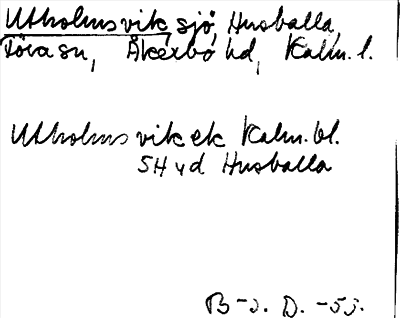 Utholmsvik, sjö, Husvalla,
Föra sn, Åkerbo hd, Kalm. l.
Utholmsvik ek Kalm. bl.
5H vd Husvalla
B-s. D. -55.